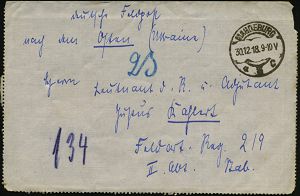 deutsche Feldpost
nach dem Osten (Ukraine)
MAGDEBURG
30.12.18.9-10V
* C
23
Herrn Leutnant d. R. u. Adjutant
Kahlert
134
Feldart. Reg. 219
II. Abt. Stab.